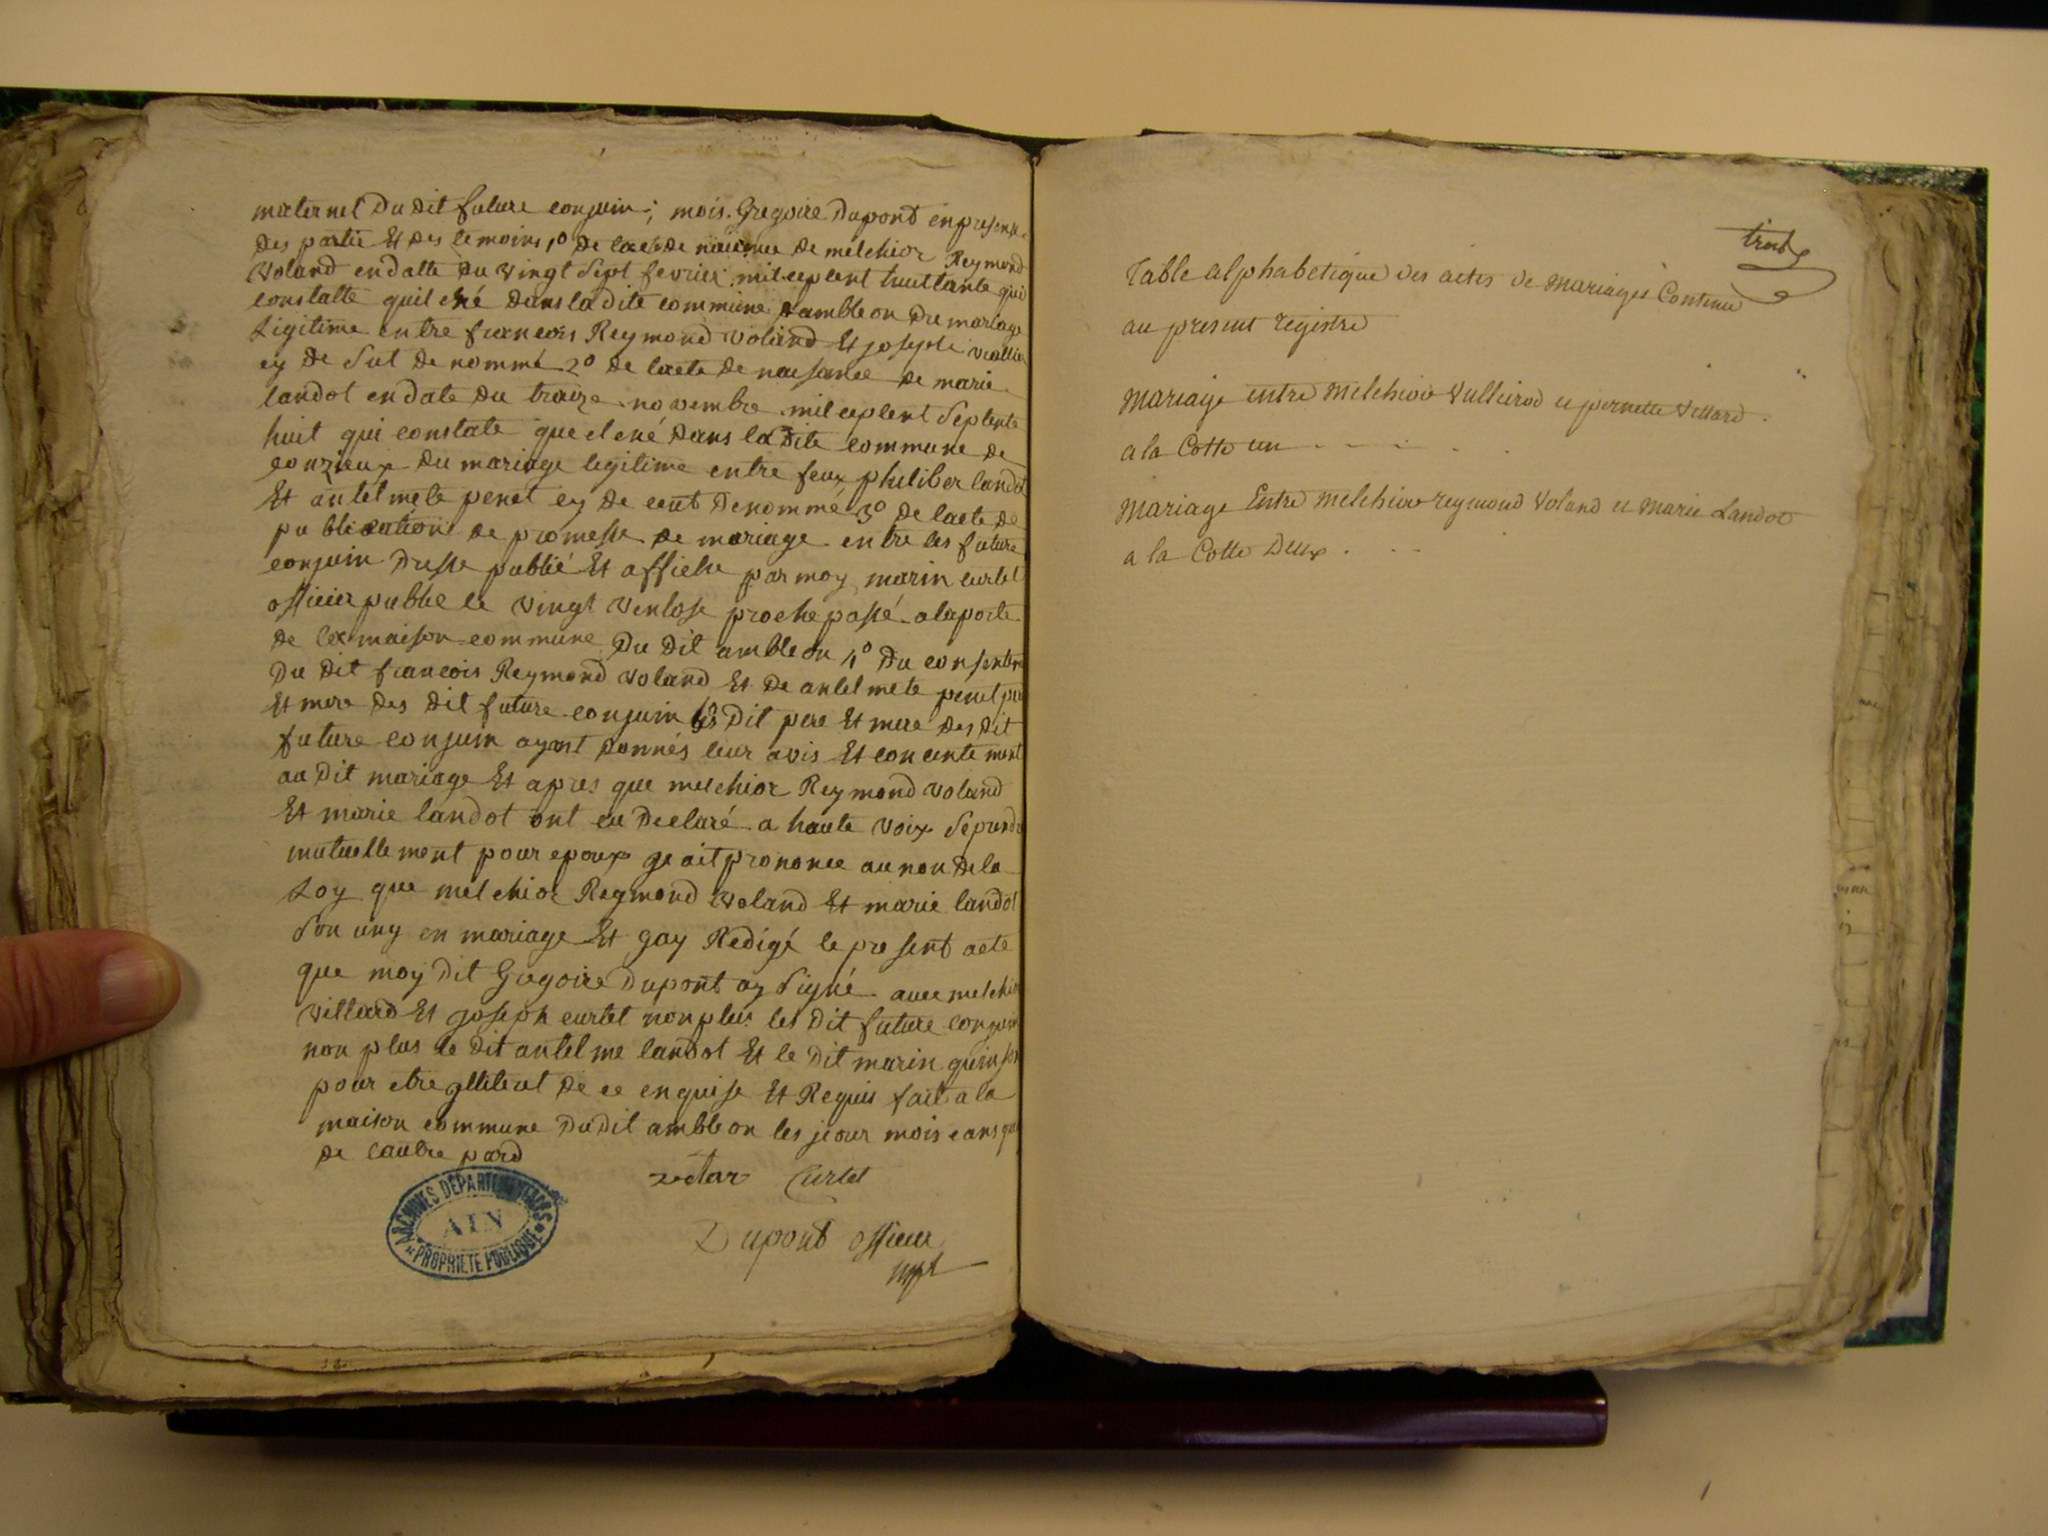 maternel Du Dit future conjuin; mois. Gregoire Dupond en presense
Des partie Et Des temoins 1º De lacte De naiсance De melchior Reymond
Voland en datte Du Vingt Sept fevrier mil ceptent huittante qui
constatte quil est né Dans la Dite commune Dambleon Du mariage
Ligitime entre francois Reymond Voland Et josepte
cy De Sut De nommé 2º De lacte De naisance De marie
landot en date Du traize novembre mil ceptent Septente
huit qui constate que el est né Dans la Dite commune De
conzieux Du mariage legitime entre feux philiber landot
Et antelmete penet cy De cent Denommé 3º De lacte De
publication De promesse De mariage entre les future
conjuin Dresse publié Et affiche par moy marin curtet
officier public le Vingt Ventose proche passé a la porte
De la maison commune Du Dit ambleon 4º Du consentem
Du Dit francois Reymond Voland Et De antelmete penet pere
Et mere Des Dit future conjuin les Dit pere Et mere Des Dit
future conjuin ayant Donnés leur avis Et concentement
au Dit mariage Et apres que melchior Reymond Voland
Et marie landot ont eu Declaré a haute Voix Se prendr
mutuellement pour epoux je ait prononce au non De la
Loy que melchior Reymond Voland Et marie landot
Son uny en mariage Et jay Redigé le present acte
que moy Dit Gregoire Dupont ay Signé avec melchior
Villard Et joseph curtet non plus les Dit future conjuin
non plus le Dit antelme landot Et le Dit marin quinson
pour etre De ce enquise Et Requis fait a la
maison commune Du Dit ambleon les jour mois e ans que
De lautre pard
Curtet
Dupont officier
ARCHIVES DÉPARTEMENTALES
AIN
PROPRIÉTÉ PUBLIQUE
Table alphabetique des actes de Mariages Contenu
au present registre
Mariage entre Melchior Vullierod et pernette Villard.
a la Cotte un
Mariage Entre Melchior reymond Voland et Marie Landot
a la Cotte Deux